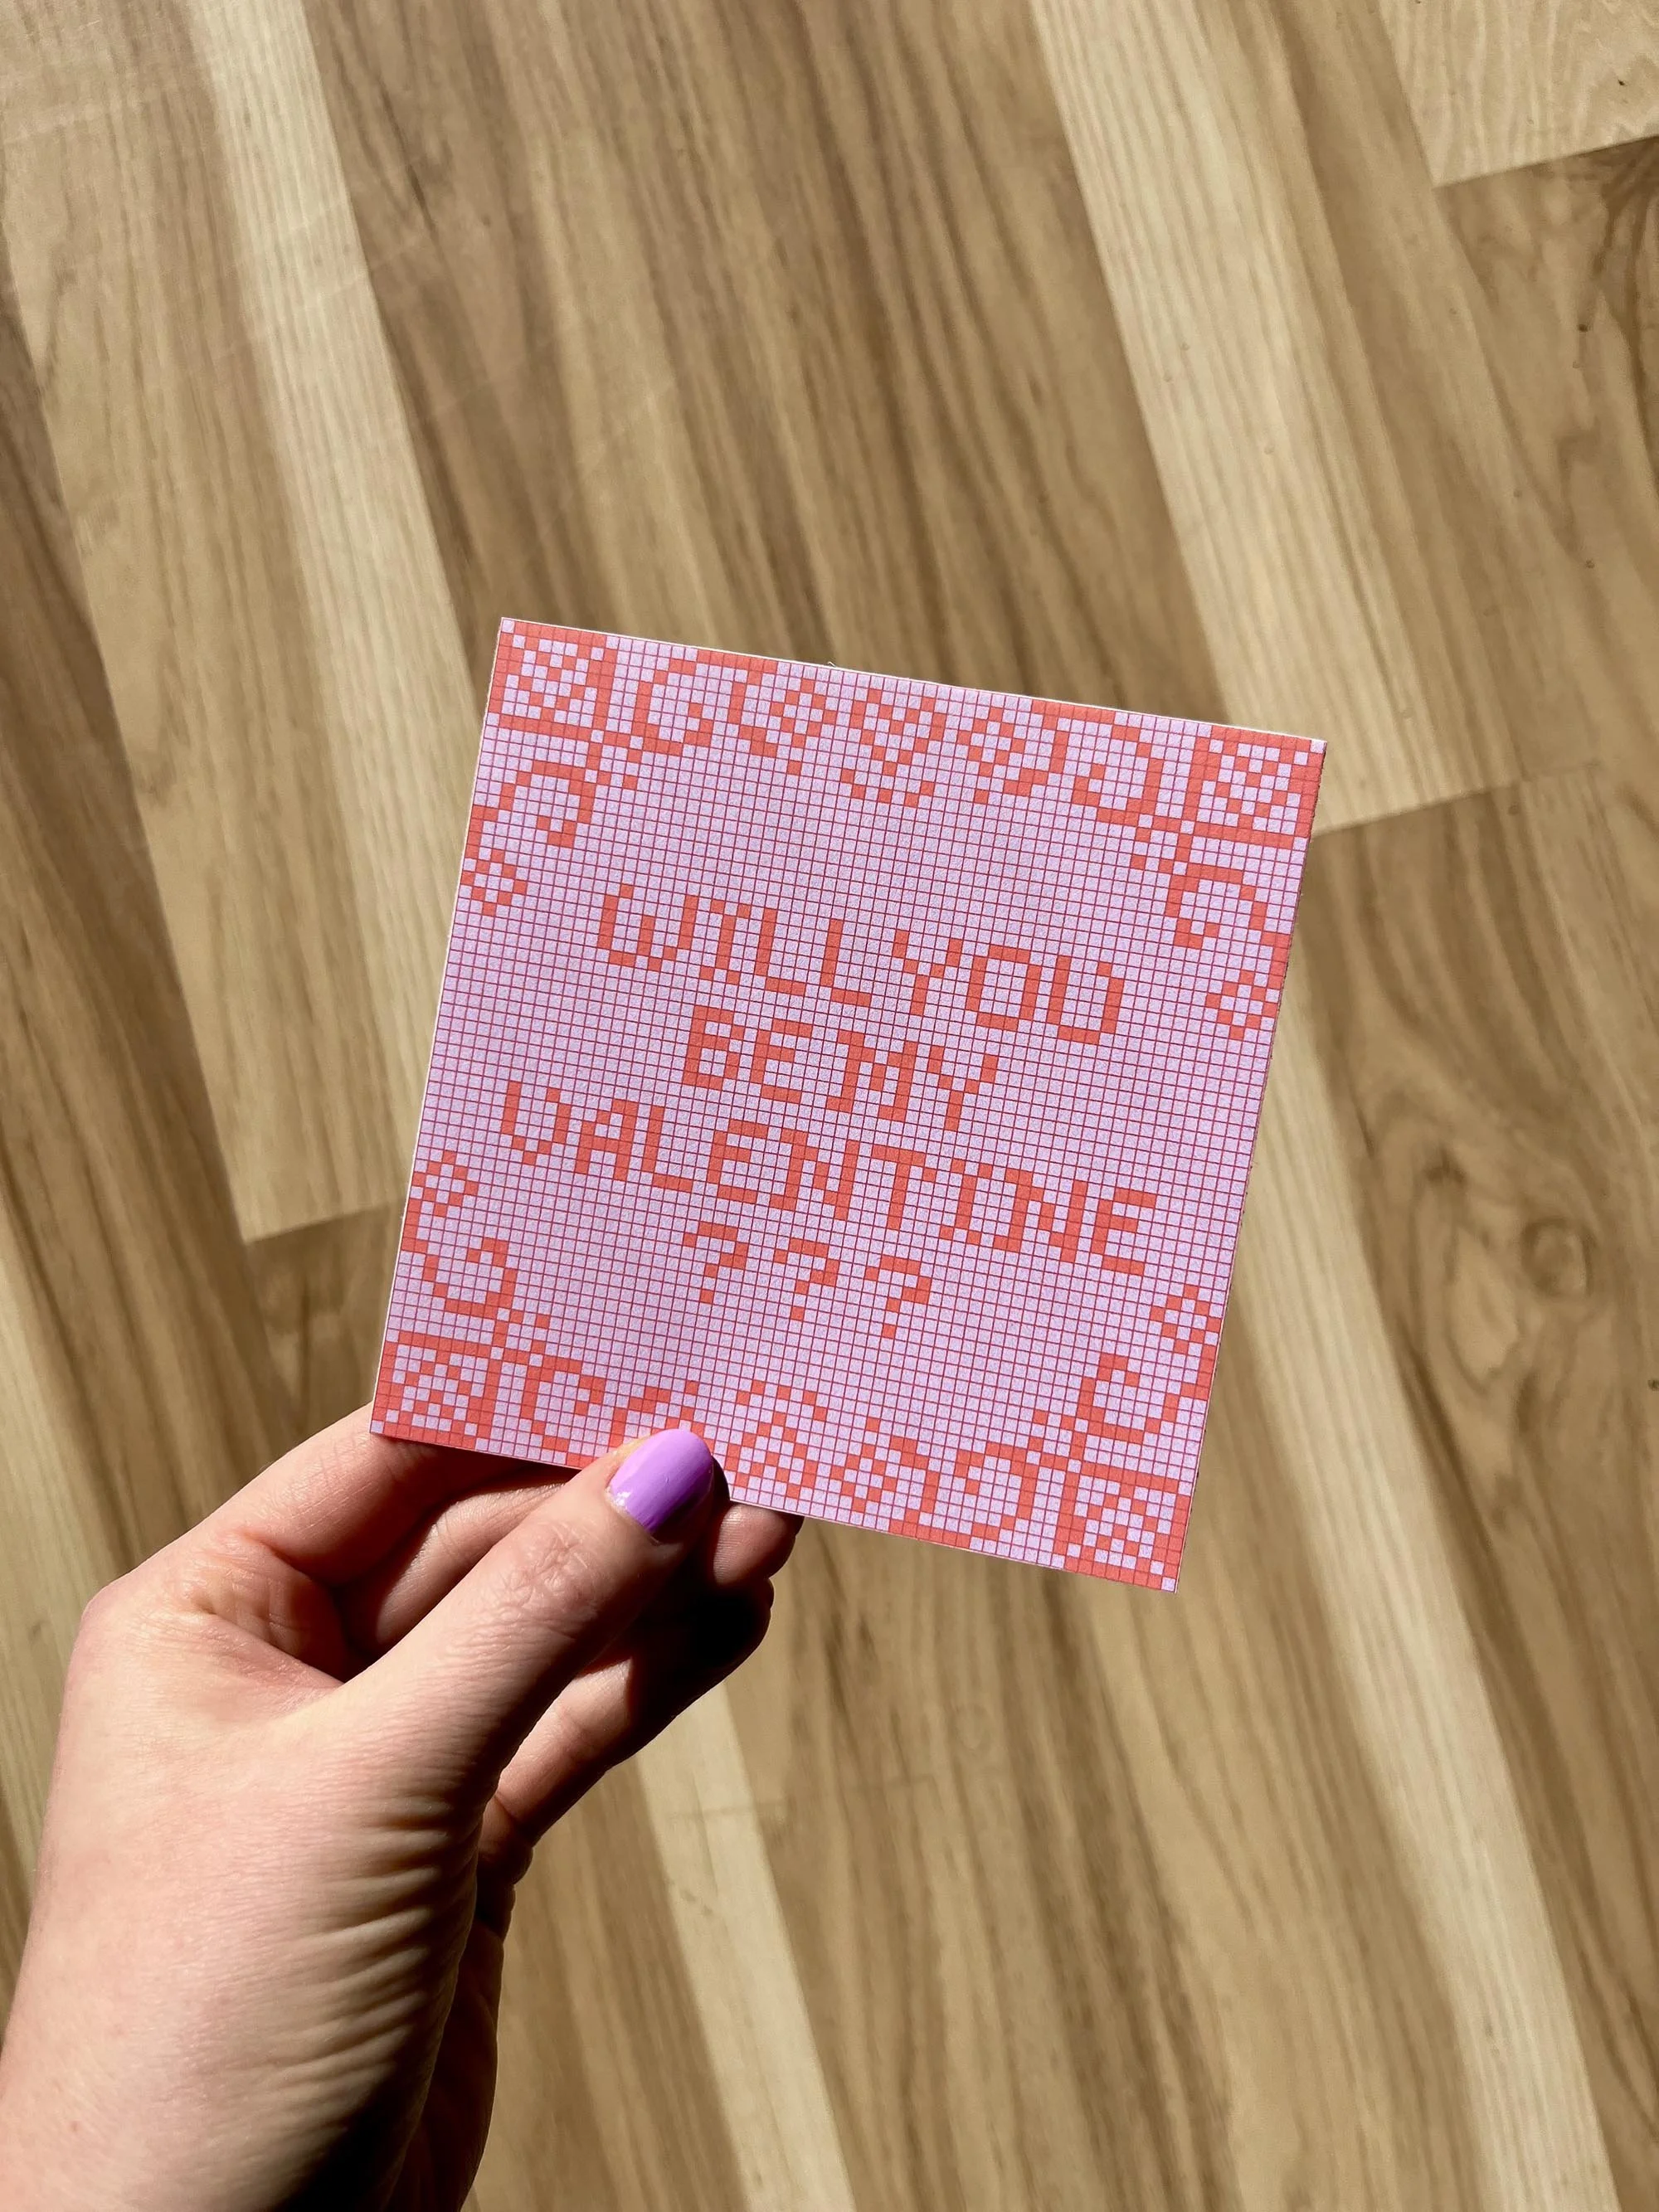 WILL YOU
BE MY
VALENTINE
???